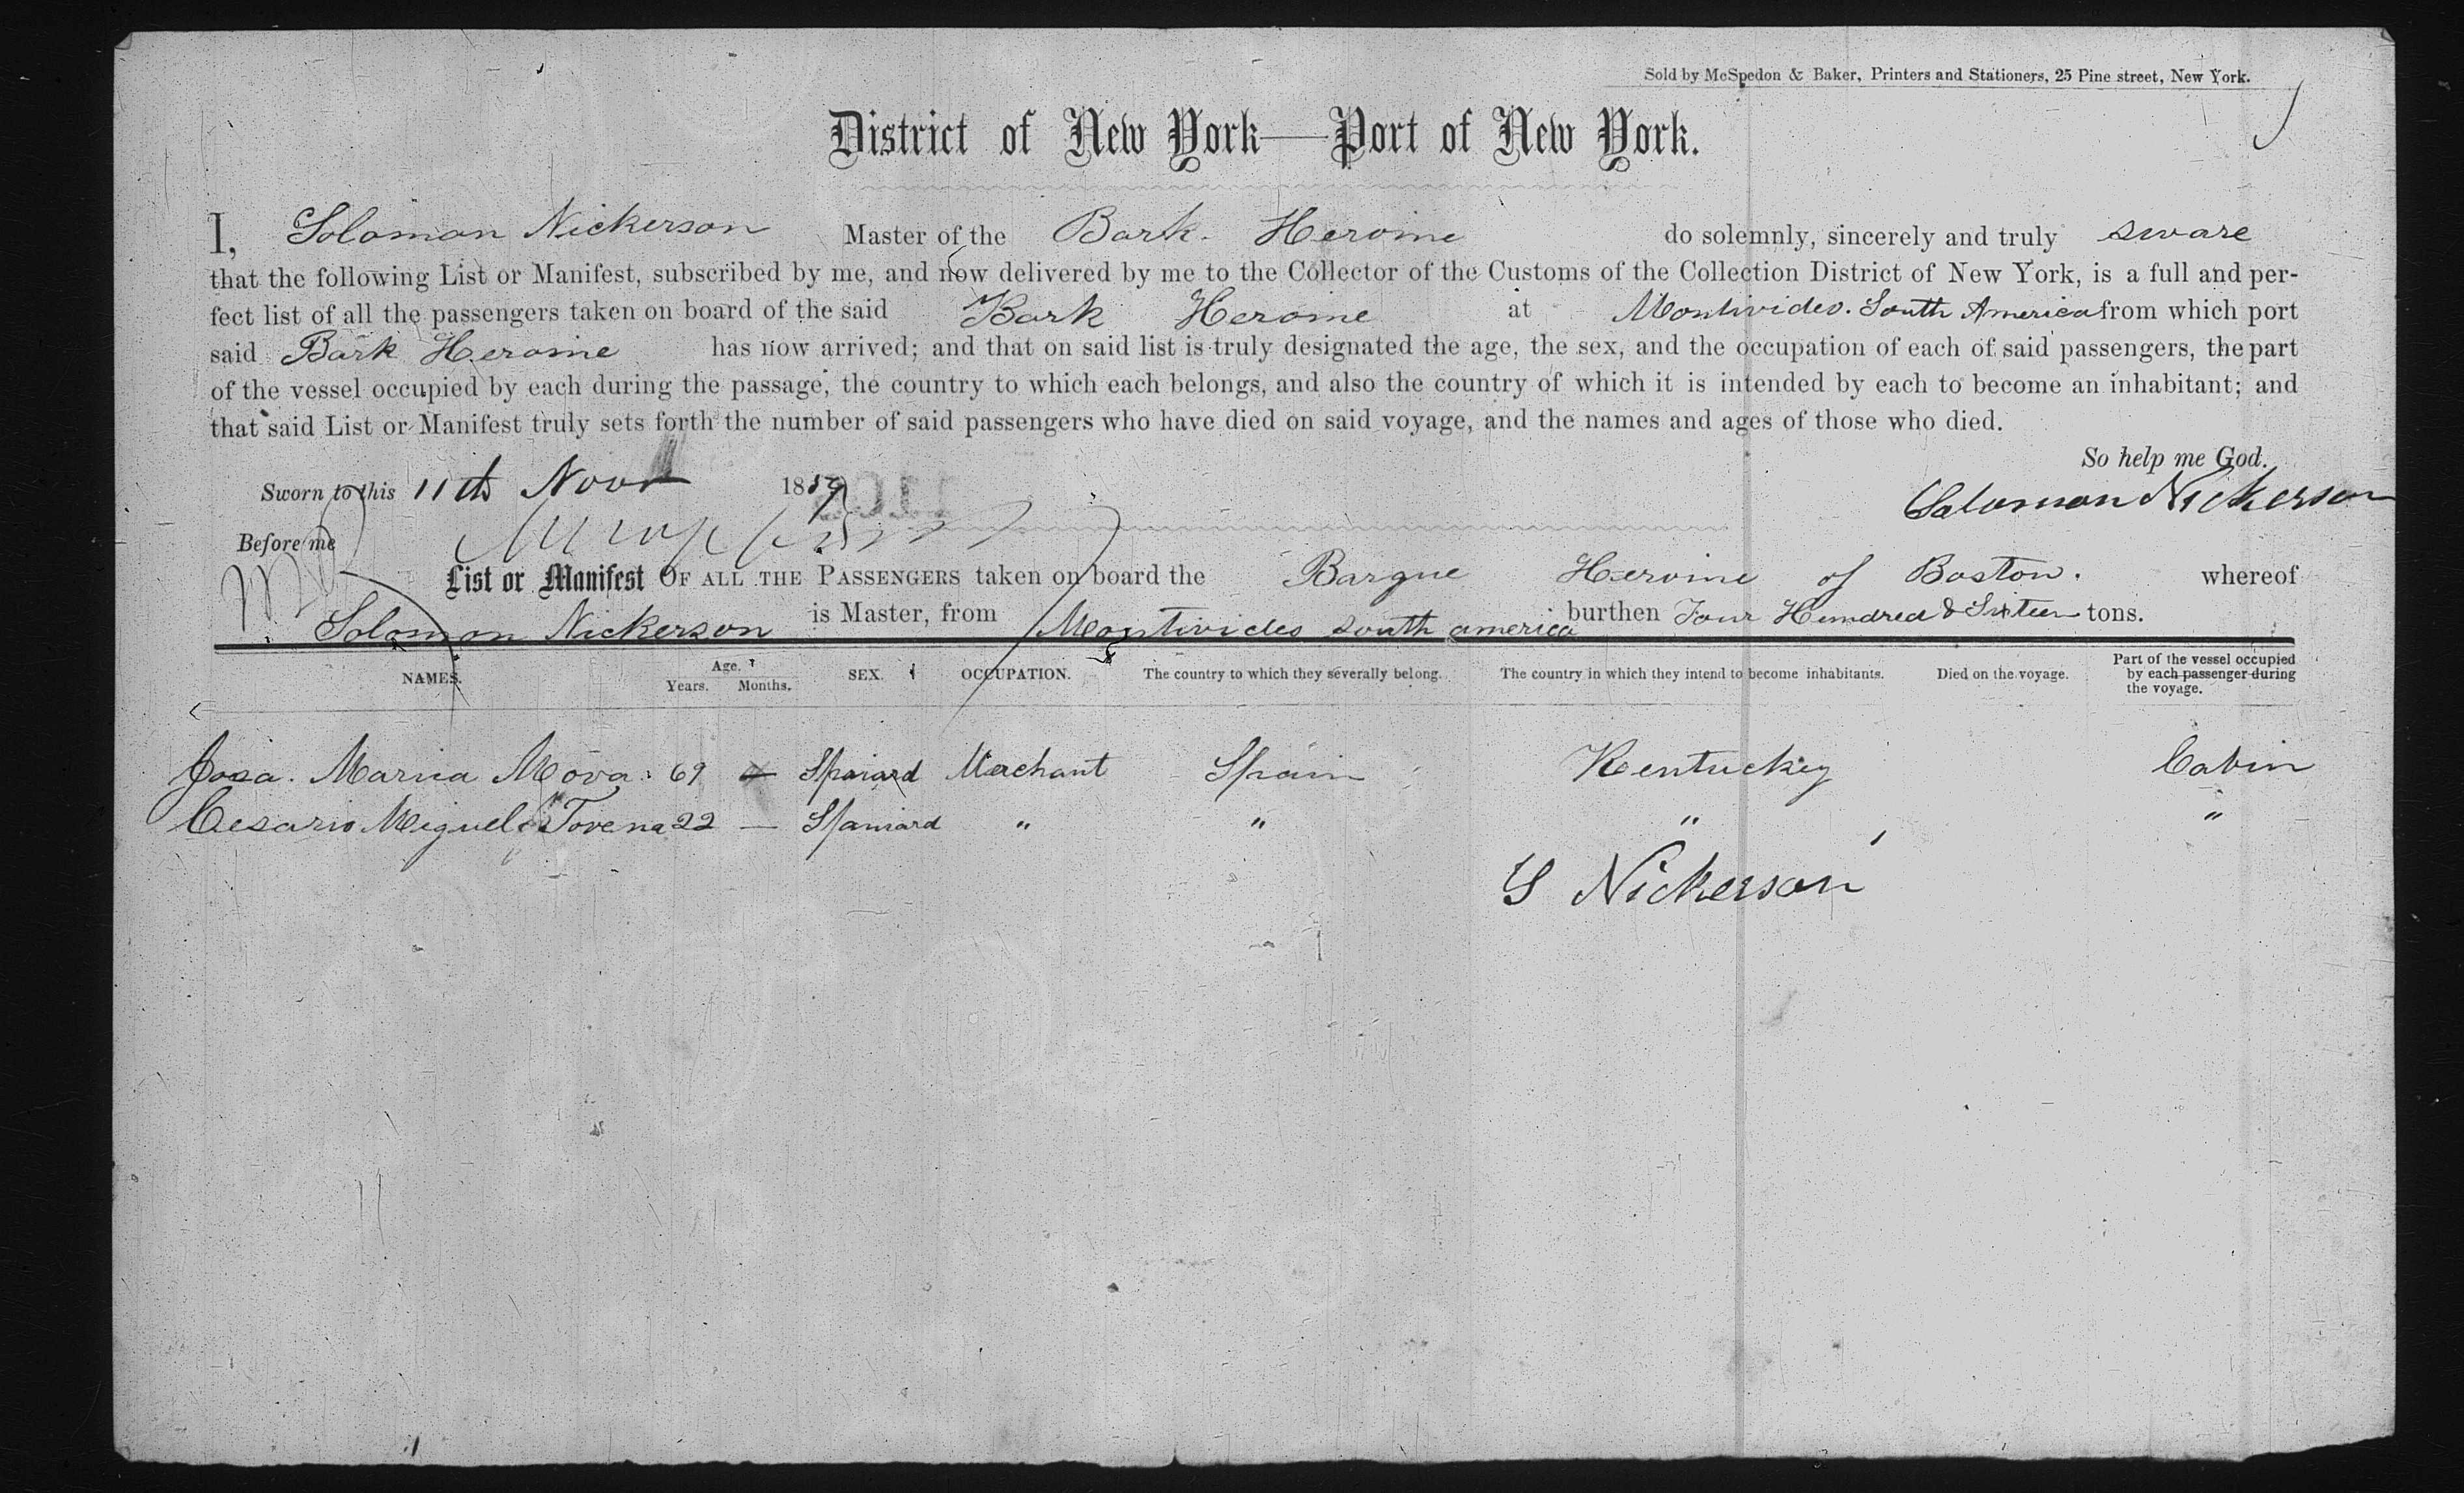 Sold by McSpedon & Baker, Printers and Stationers, 25 Pine street, New York.
District of New York—Port of New York.
I, Soloman Nickerson Master of the Bark. Heroine do solemnly, sincerely and truly sware
that the following List or Manifest, subscribed by me, and now delivered by me to the Collector of the Customs of the Collection District of New York, is a full and per-
fect list of all the passengers taken on board of the said Bark Heroine at Montivideo. South America from which port
said Bark Heroine has now arrived; and that on said list is truly designated the age, the sex, and the occupation of each of said passengers, the part
of the vessel occupied by each during the passage, the country to which each belongs, and also the country of which it is intended by each to become an inhabitant; and
that said List or Manifest truly sets forth the number of said passengers who have died on said voyage, and the names and ages of those who died.
So help me God.
Sworn to this 11th Novr 1859 Soloman Nickerson
Before me
List or Manifest OF ALL THE PASSENGERS taken on board the Barque Heroine of Boston. whereof
Soloman Nickerson is Master, from Montivideo south america burthen Four Hundred & Sixteen tons.
NAMES. Age. Years. Months. SEX. OCCUPATION. The country to which they severally belong. The country in which they intend to become inhabitants. Died on the voyage. Part of the vessel occupied by each passenger during the voyage.
Josa. Marria Mova. 69 — Spaiard Merchant Spain Kentuckey Cabin
Cesario Miguel Tovena 22 — Spaniard " " " "
S Nickerson